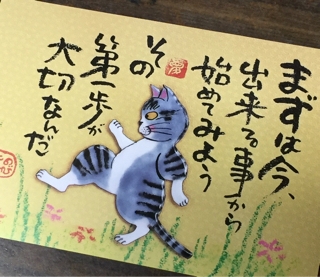 まずは今、
出来る事から
始めてみよう
その
第一歩が
大切なんだ
夢